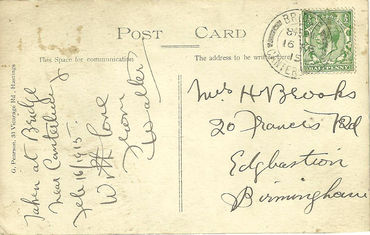 POST CARD
This Space for communication
The address to be written
G. Pearson, 23 Vicarage Rd., Hastings
Taken at Bridge
near Canterbury
Feb 16/1915.
With love
from
Walter
Mrs H Brooks
20 Francis Rd
Edgbastion
Birmingham
BR
16
15
CANTER
HALFPENNY